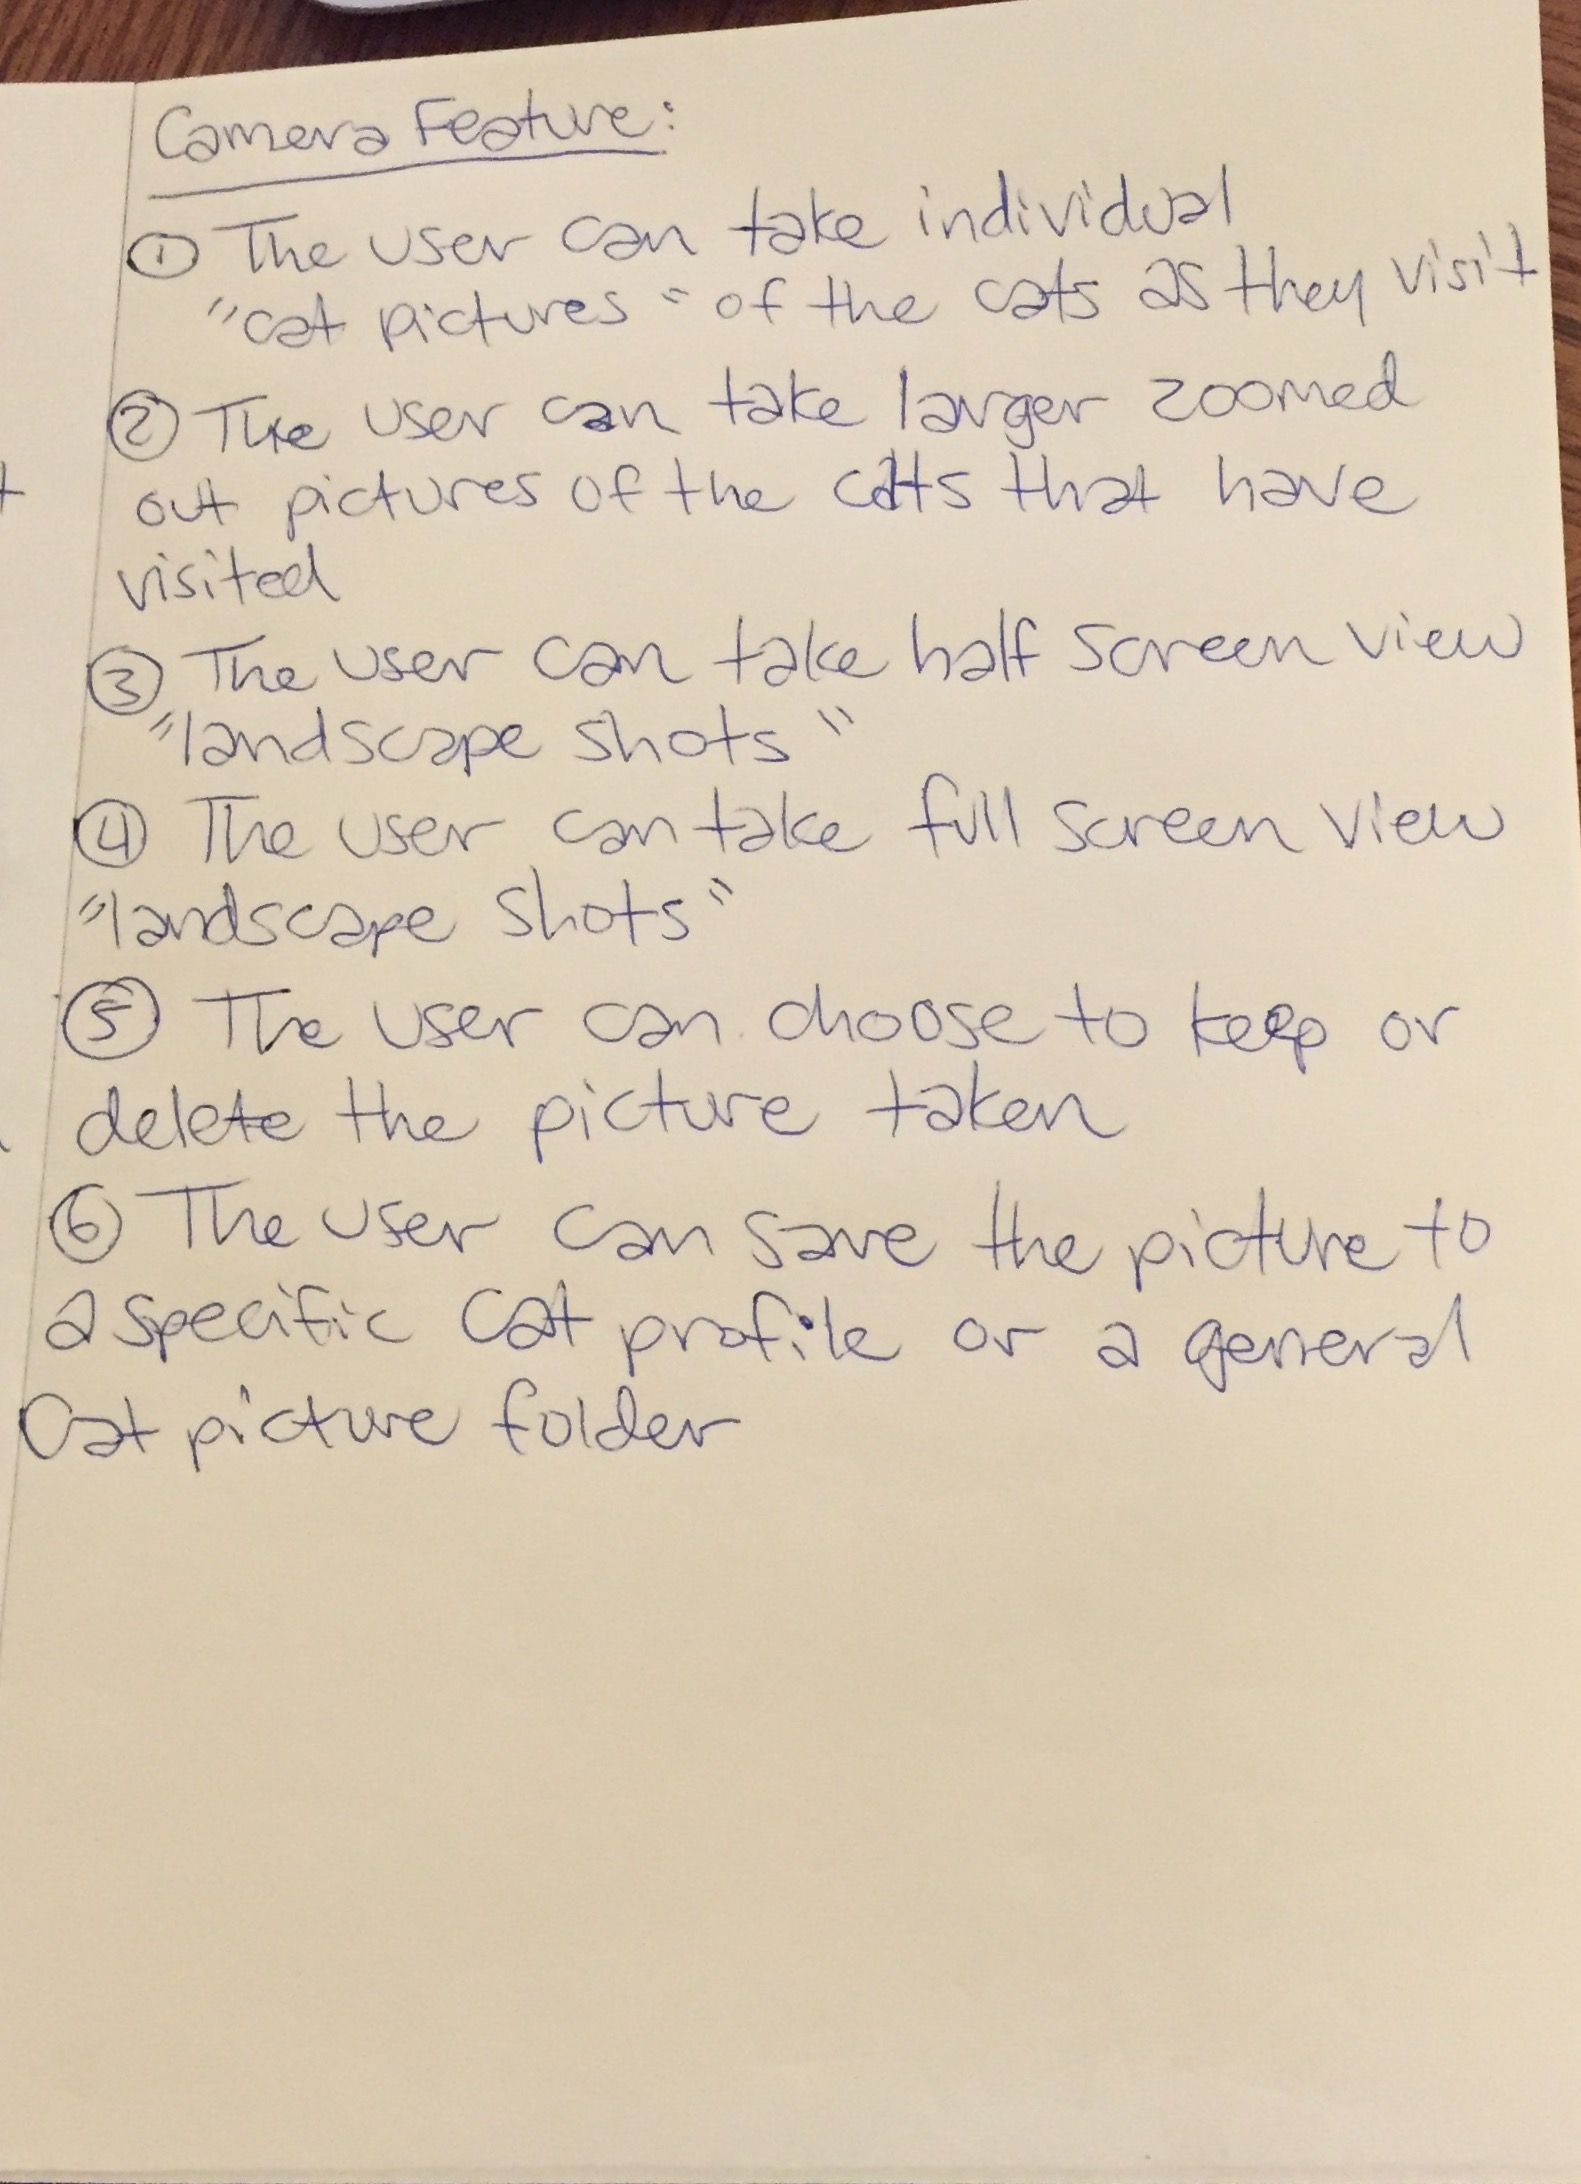 Camera Feature:
① The user can take individual
"cat pictures" of the cats as they visit
② The user can take larger zoomed
out pictures of the cats that have
visited
③ The user can take half screen view
"landscape shots"
④ The user can take full screen view
"landscape shots"
⑤ The user can choose to keep or
delete the picture taken
⑥ The user can save the picture to
a specific cat profile or a general
Cat picture folder